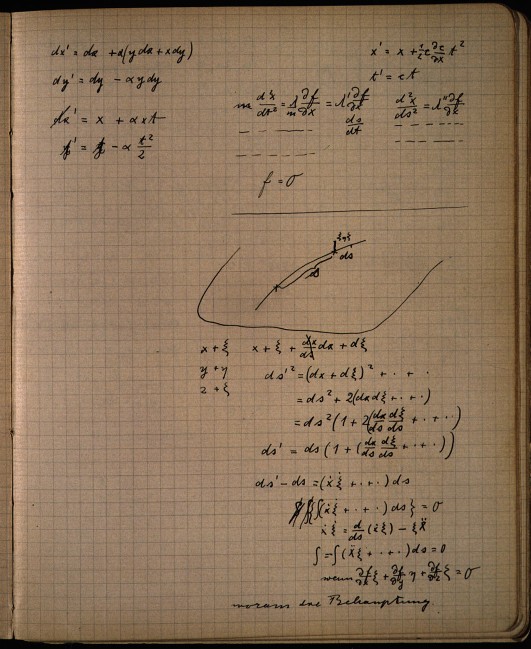 dx' = dx + α(y dx + x dy)
dy' = dy − α y dy
x' = x + α x t
t' = t − α t²/2
x' = x + ½ c ∂c/∂x t²
t' = c t
m d²x/dt² = λ ∂f/∂x = λ' ∂f/∂x    d²x/ds² = λ'' ∂f/∂x
ds/dt
f = 0
ξ η ζ
ds'
ds
x + ξ    x + ξ + dx/ds dx + dξ
y + η    ds'² = (dx + dξ)² + · + ·
z + ζ    = ds² + 2(dx dξ + · + ·)
= ds² (1 + 2(dx/ds dξ/ds + · + ·))
ds' = ds (1 + (dx/ds dξ/ds + · + ·))
ds' − ds = (ẋ ξ̇ + · + ·) ds
∫{(ẋ ξ̇ + · + ·) ds} = 0
ẋ ξ̇ = d/ds (ẋ ξ) − ξ ẍ
∫ = ∫(ẍ ξ + · + ·) ds = 0
wenn ∂f/∂x ξ + ∂f/∂y η + ∂f/∂z ζ = 0
woraus die Behauptung.